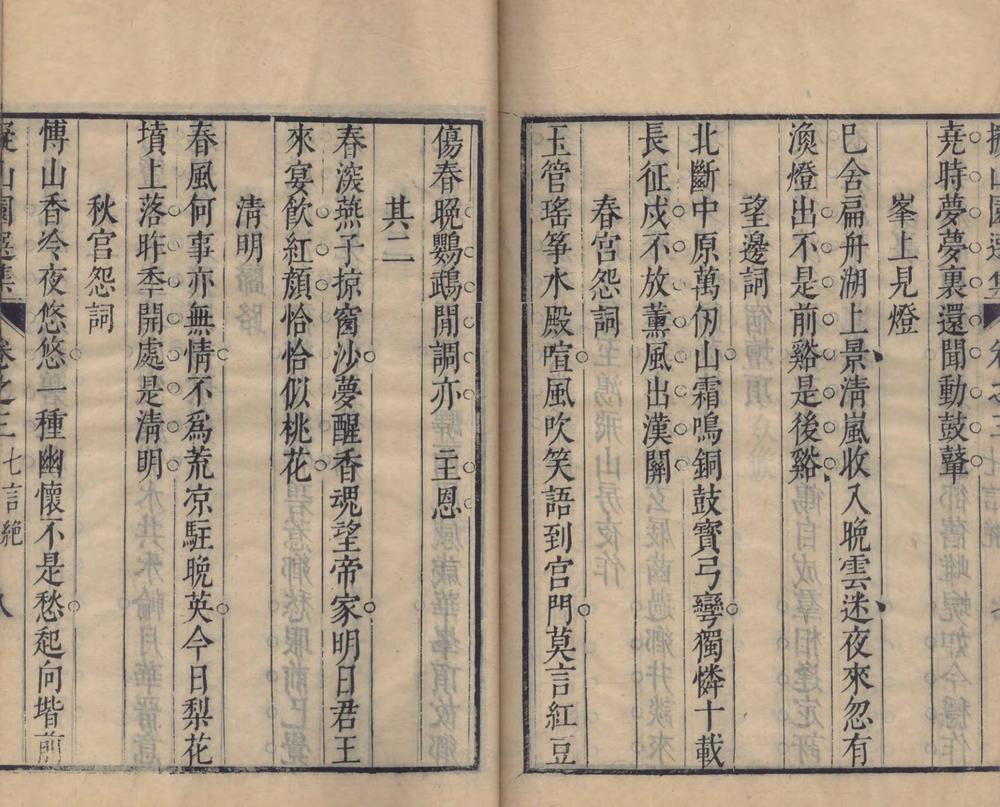 堯時夢夢裏還聞動鼓鼙
峯上見燈
已舍扁舟湖上景清嵐收入晩雲迷夜來忽有
漁燈出不是前谿是後谿
望邊詞
北斷中原萬仞山霜鳴銅鼓寶弓彎獨憐十載
長征戍不放薰風出漢關
春宮怨詞
玉管瑤箏水殿喧風吹笑語到宮門莫言紅豆
傷春晩鸚鵡閒調亦主恩
其二
春深燕子掠窗沙夢醒香魂望帝家明日君王
來宴飲紅顔恰恰似桃花
清明
春風何事亦無情不爲荒凉駐晩英今日梨花
墳上落昨季開處是清明
秋宮怨詞
愽山香冷夜悠悠一種幽懷不是愁起向堦前
擬山園選集 卷之三 七言絶 八